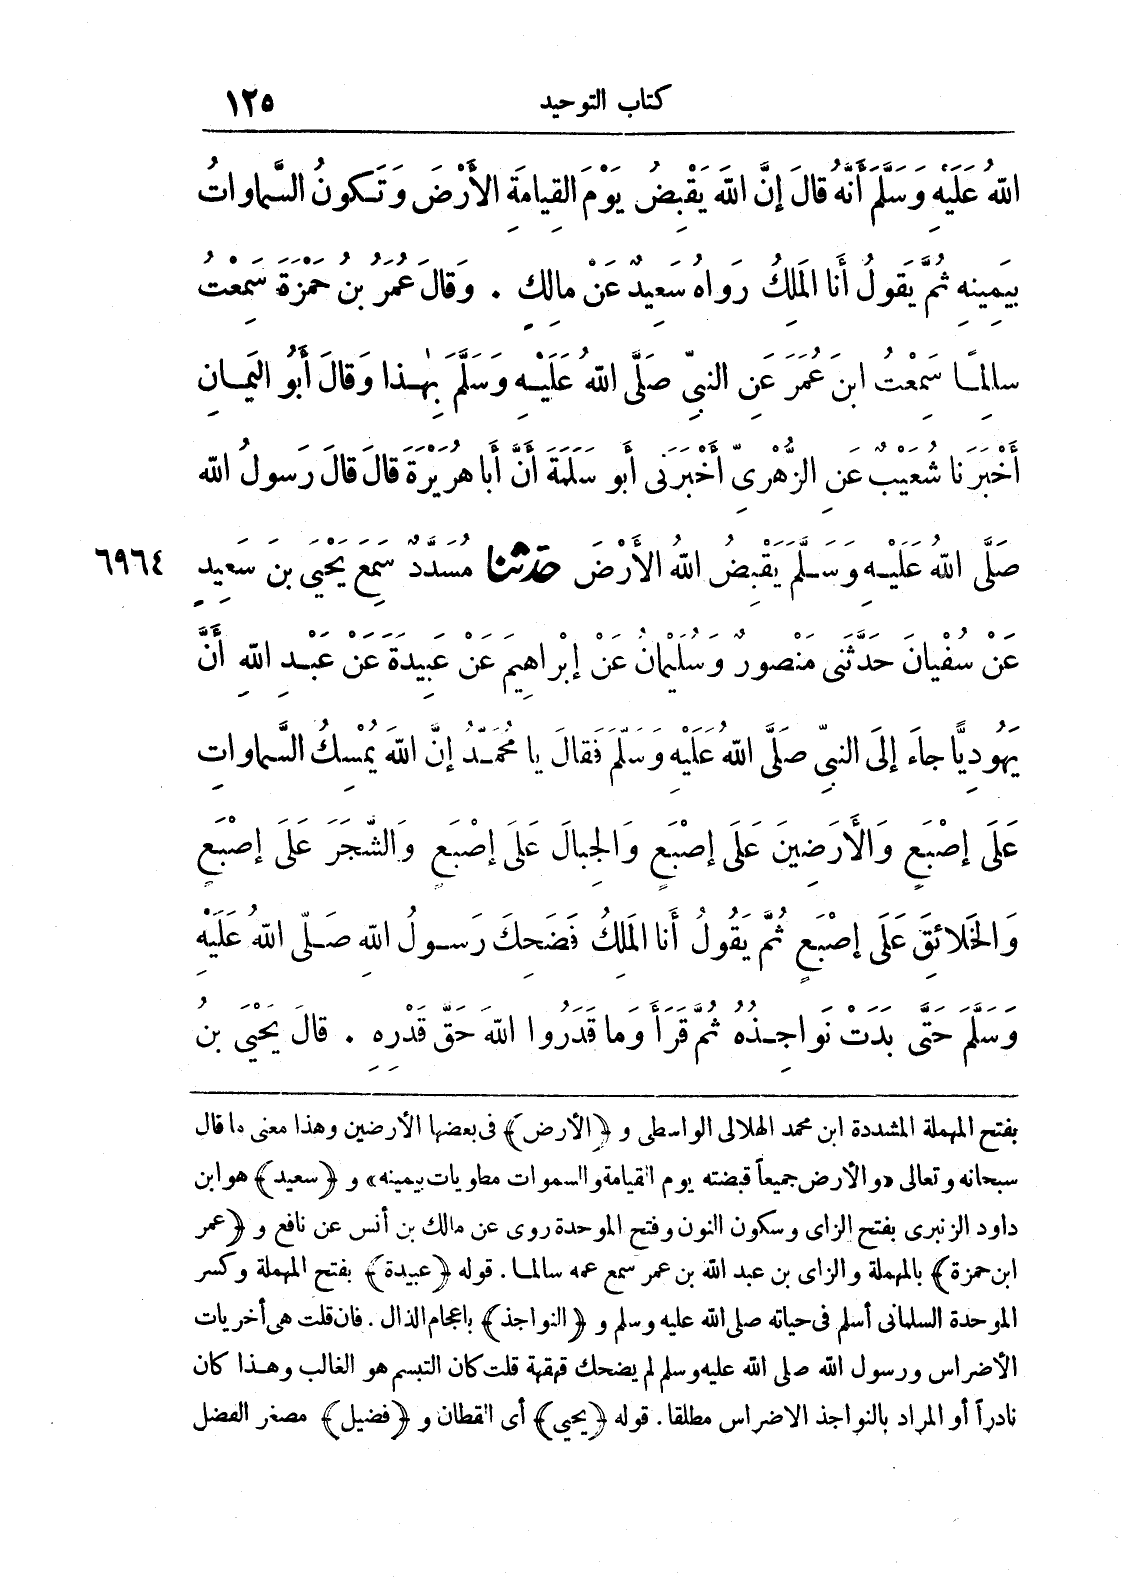 كتاب التوحيد ١٢٥
اللهُ عَلَيْهِ وَسَلَّمَ أَنَّهُ قالَ إنَّ اللهَ يَقْبِضُ يَوْمَ القِيامَةِ الأَرْضَ وَتَكونُ السَّماواتُ
بِيَمِينِهِ ثُمَّ يَقولُ أَنا المَلِكُ رَواهُ سَعِيدٌ عَنْ مالِكٍ . وَقالَ عُمَرُ بنُ حَمْزَةَ سَمِعْتُ
سالِمًا سَمِعْتُ ابنَ عُمَرَ عَنِ النبيِّ صَلَّى اللهُ عَلَيْهِ وَسَلَّمَ بِهٰذا وَقالَ أَبُو اليَمانِ
أَخْبَرَنا شُعَيْبٌ عَنِ الزُّهْرِىِّ أَخْبَرَنى أَبو سَلَمَةَ أَنَّ أَبا هُرَيْرَةَ قالَ قالَ رَسولُ اللهِ
صَلَّى اللهُ عَلَيْهِ وَسَلَّمَ يَقْبِضُ اللهُ الأَرْضَ حدثنا مُسَدَّدٌ سَمِعَ يَحْيَى بنَ سَعِيدٍ ٦٩٦٤
عَنْ سُفْيانَ حَدَّثَنى مَنْصورٌ وَسُلَيْمانُ عَنْ إبْراهِيمَ عَنْ عَبِيدَةَ عَنْ عَبْدِ اللهِ أَنَّ
يَهُودِيًّا جاءَ إلَى النبيِّ صَلَّى اللهُ عَلَيْهِ وَسَلَّمَ فَقالَ يا مُحَمَّدُ إنَّ اللهَ يُمْسِكُ السَّماواتِ
عَلَى إصْبَعٍ وَالأَرَضِينَ عَلَى إصْبَعٍ وَالجِبالَ عَلَى إصْبَعٍ وَالشَّجَرَ عَلَى إصْبَعٍ
وَالخَلائِقَ عَلَى إصْبَعٍ ثُمَّ يَقُولُ أَنا المَلِكُ فَضَحِكَ رَسولُ اللهِ صَلَّى اللهُ عَلَيْهِ
وَسَلَّمَ حَتَّى بَدَتْ نَواجِذُهُ ثُمَّ قَرَأَ وَما قَدَرُوا اللهَ حَقَّ قَدْرِهِ . قالَ يَحْيَى بنُ
بفتح المهملة المشددة ابن محمد الهلالى الواسطى و ﴿الأرض﴾ فى بعضها الأرضين وهذا معنى ما قال
سبحانه وتعالى «والأرض جميعاً قبضته يوم القيامة والسموات مطويات بيمينه» و ﴿سعيد﴾ هو ابن
داود الزنبرى بفتح الزاى وسكون النون وفتح الموحدة روى عن مالك بن أنس عن نافع و ﴿عمر
ابن حمزة﴾ بالمهملة والزاى بن عبد الله بن عمر سمع عمه سالما . قوله ﴿عبيدة﴾ بفتح المهملة وكسر
الموحدة السلمانى أسلم فى حياته صلى الله عليه وسلم و ﴿النواجذ﴾ باعجام الذال . فان قلت هى أخريات
الاضراس ورسول الله صلى الله عليه وسلم لم يضحك قهقهة قلت كان التبسم هو الغالب وهذا كان
نادراً أو المراد بالنواجذ الاضراس مطلقا . قوله ﴿يحيى﴾ أى القطان و ﴿فضيل﴾ مصغر الفضل